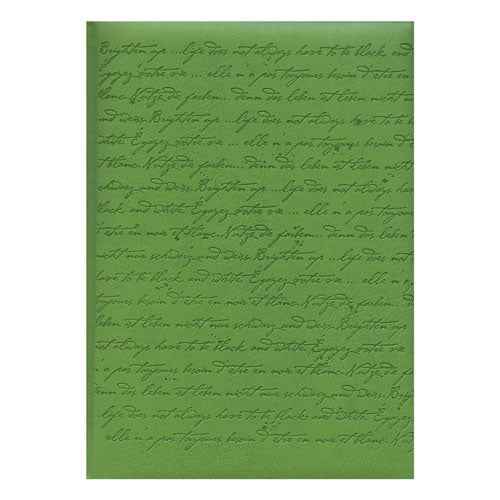 Brighten up ...life does not always have to be black and
Égayez votre vie ... elle n'a pas toujours besoin d'être en
blanc. Nutze die farben... denn das leben ist leben nicht
und weiss. Brighten up ...life does not always have to b
Égayez votre vie ... elle n'a pas toujours besoin d'être
et blanc. Nutze die farben... denn das leben ist leben nicht
schwarz und weiss. Brighten up ...life does not always have
black and white. Égayez votre vie ... elle n'a pas toujours
noir et blanc. Nutze die farben... denn das leben ist
nicht nur schwarz und weiss. Brighten up ...life does not always
have to be black and white. Égayez votre vie ... elle n'a
toujours besoin d'être en noir et blanc. Nutze die farben... den
leben ist leben nicht nur schwarz und weiss. Brighten up ...life does
not always have to be black and white. Égayez votre vie ... elle
n'a pas toujours besoin d'être en noir et blanc. Nutze die farben...
enn das leben ist leben nicht nur schwarz und weiss. Brighten up
...life does not always have to be black and white. Égayez votre vie
elle n'a pas toujours besoin d'être en noir et blanc. Nutze